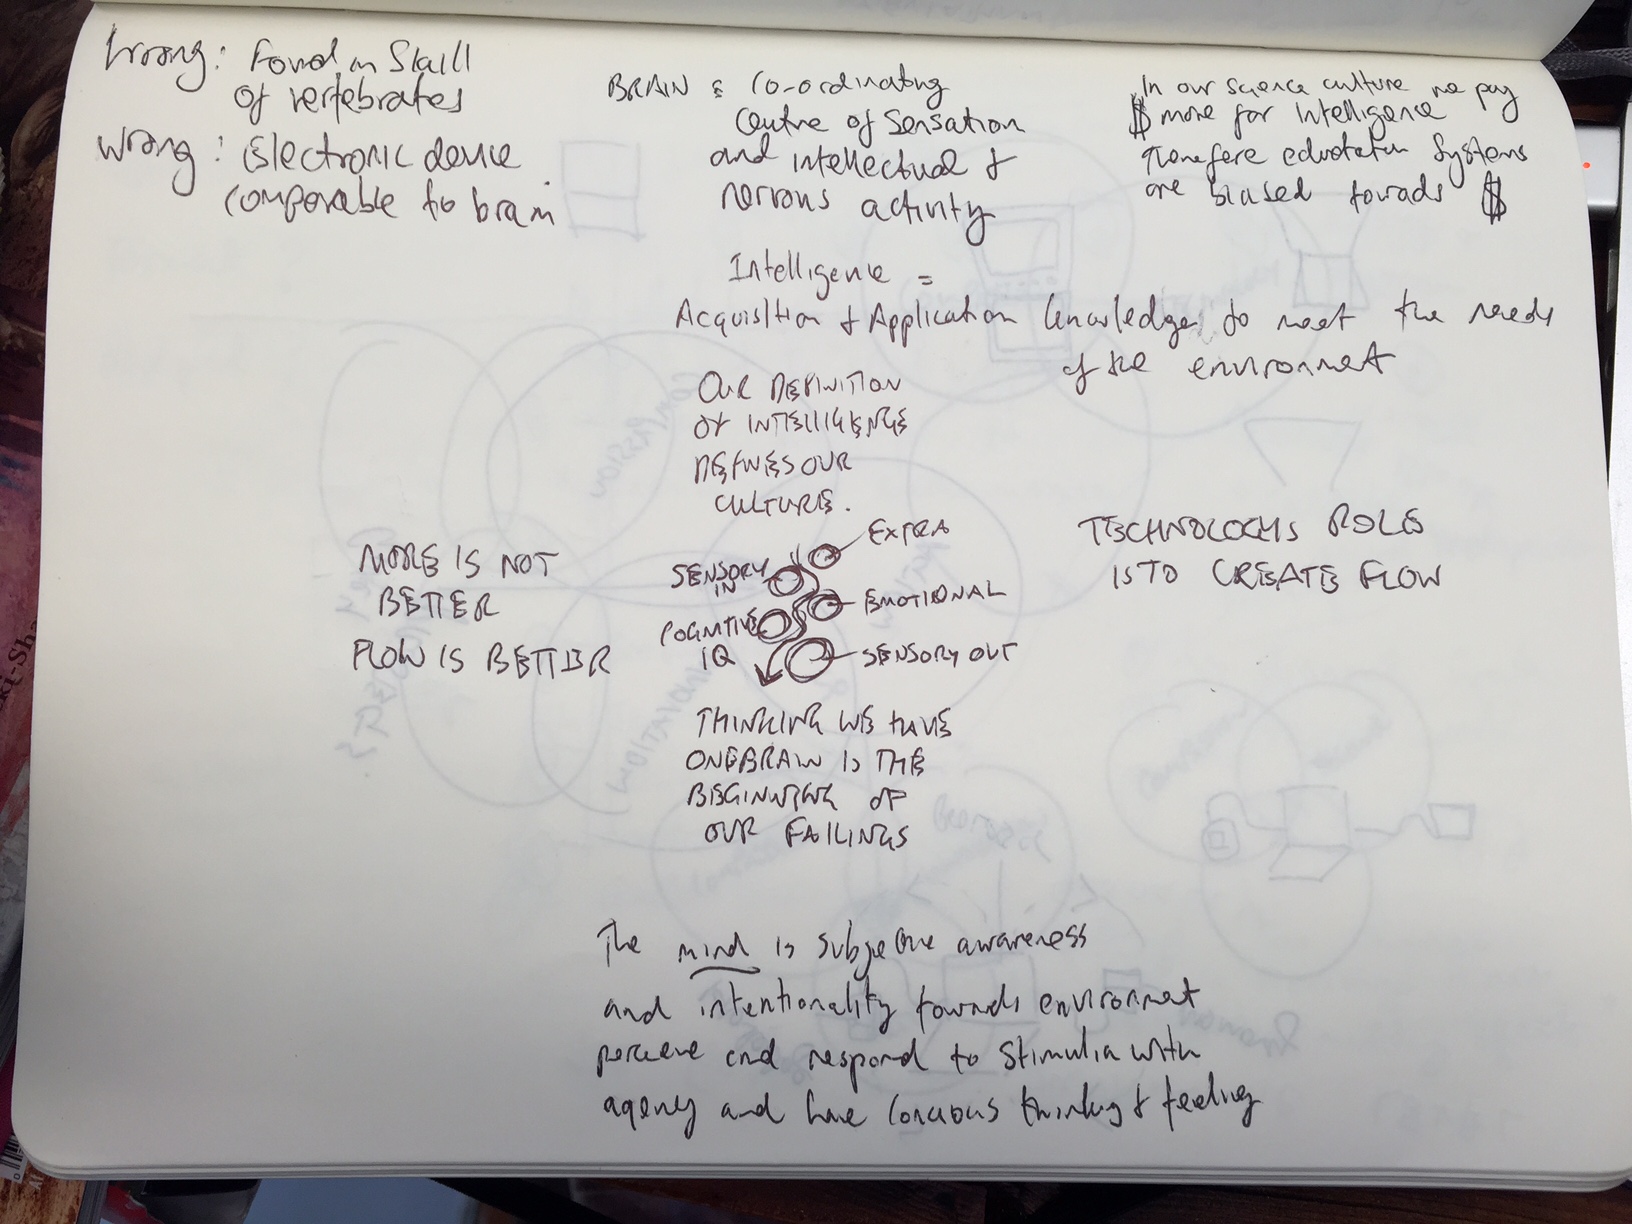 Wrong: Found in Skull
of vertebrates
Wrong: Electronic device
comparable to brain
BRAIN : Co-ordinating
Centre of Sensation
and intellectual &
nervous activity
In our science culture we pay
$ more for Intelligence
Therefore education Systems
are biased towards $
Intelligence =
Acquisition & Application knowledge to meet the needs
of the environment
OUR DEFINITION
OF INTELLIGENCE
DEFINES OUR
CULTURE.
MORE IS NOT
BETTER
FLOW IS BETTER
EXTRA
SENSORY
IN
EMOTIONAL
COGNITIVE
IQ
SENSORY OUT
TECHNOLOGYS ROLE
IS TO CREATE FLOW
THINKING WE HAVE
ONE BRAIN IS THE
BEGINNING OF
OUR FAILINGS
The mind is subjective awareness
and intentionality towards environment
percieve and respond to stimulia with
agency and have concious thinking & feeling